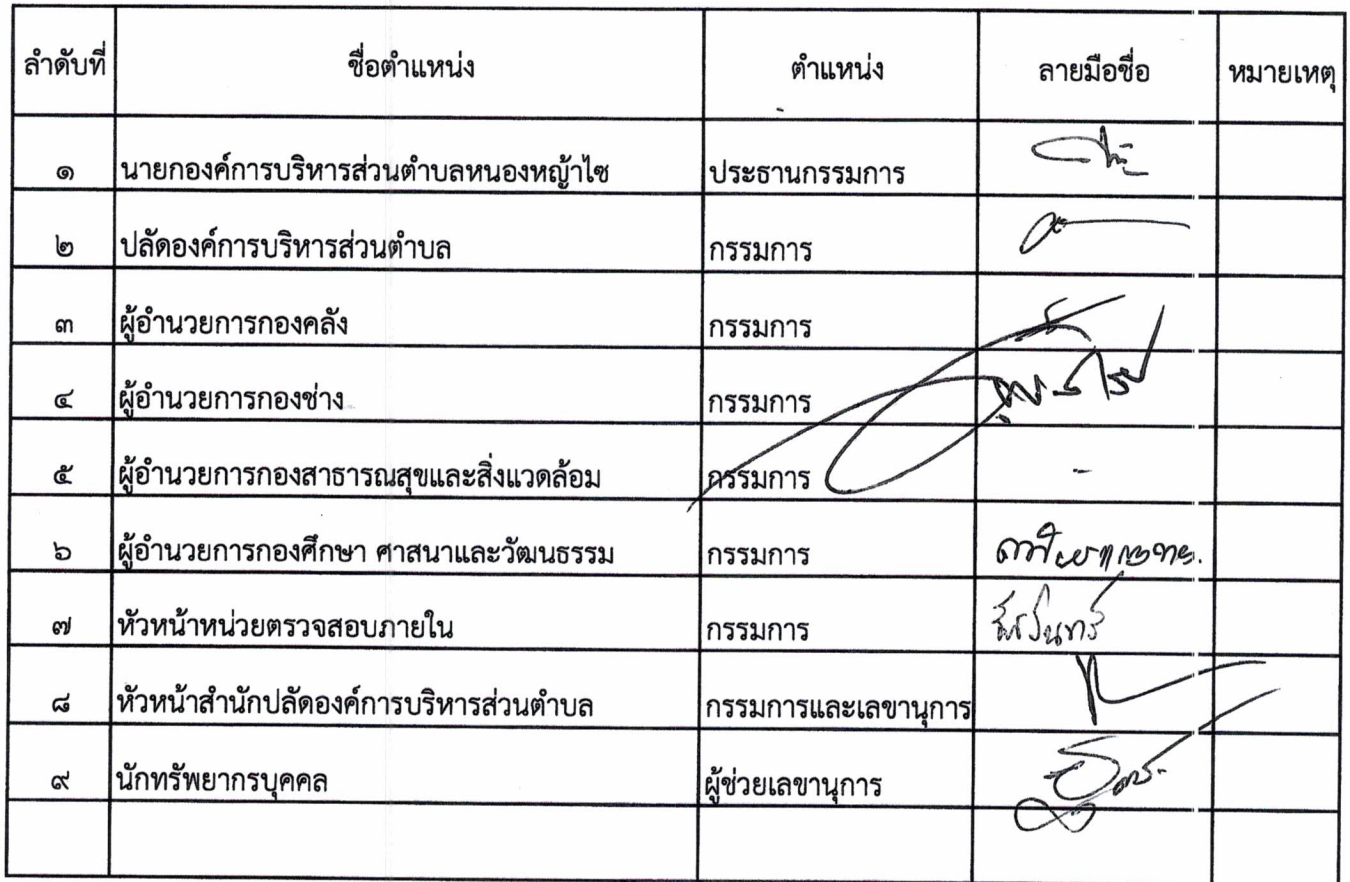 ลำดับที่ ชื่อตำแหน่ง ตำแหน่ง ลายมือชื่อ หมายเหตุ
๑ นายกองค์การบริหารส่วนตำบลหนองหญ้าไซ ประธานกรรมการ
๒ ปลัดองค์การบริหารส่วนตำบล กรรมการ
๓ ผู้อำนวยการกองคลัง กรรมการ
๔ ผู้อำนวยการกองช่าง กรรมการ
๕ ผู้อำนวยการกองสาธารณสุขและสิ่งแวดล้อม กรรมการ -
๖ ผู้อำนวยการกองศึกษา ศาสนาและวัฒนธรรม กรรมการ
๗ หัวหน้าหน่วยตรวจสอบภายใน กรรมการ
๘ หัวหน้าสำนักปลัดองค์การบริหารส่วนตำบล กรรมการและเลขานุการ
๙ นักทรัพยากรบุคคล ผู้ช่วยเลขานุการ